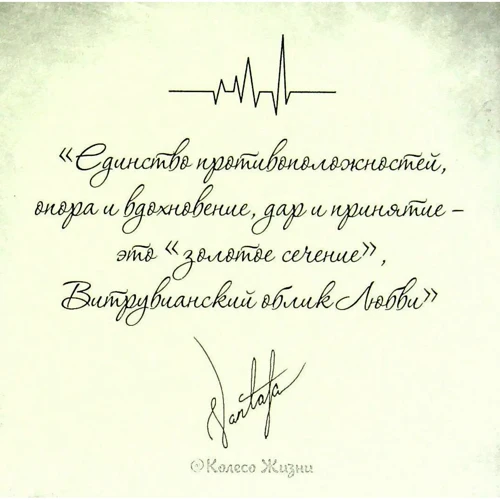 «Единство противоположностей,
опора и вдохновение, дар и принятие –
это «золотое сечение»,
Витрувианский облик Любви»
Колесо Жизни